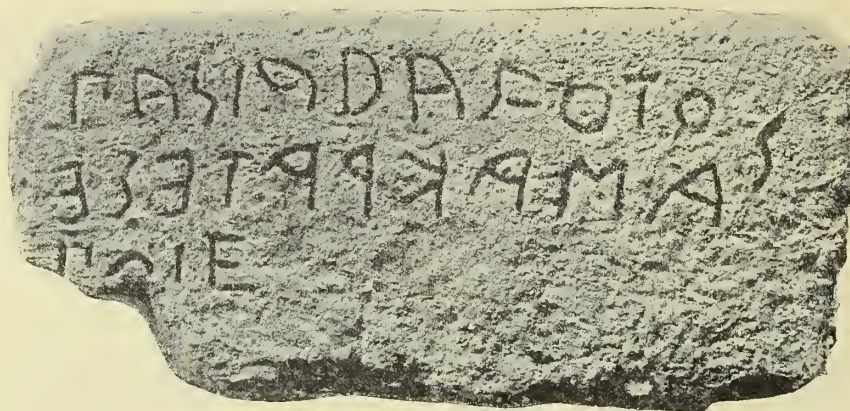 ΠΑΣΙΑΔΑϜΟΤΟ
ΣΑΜΑΚΡΑΤΕΣΕ
ΠΟΙΕ